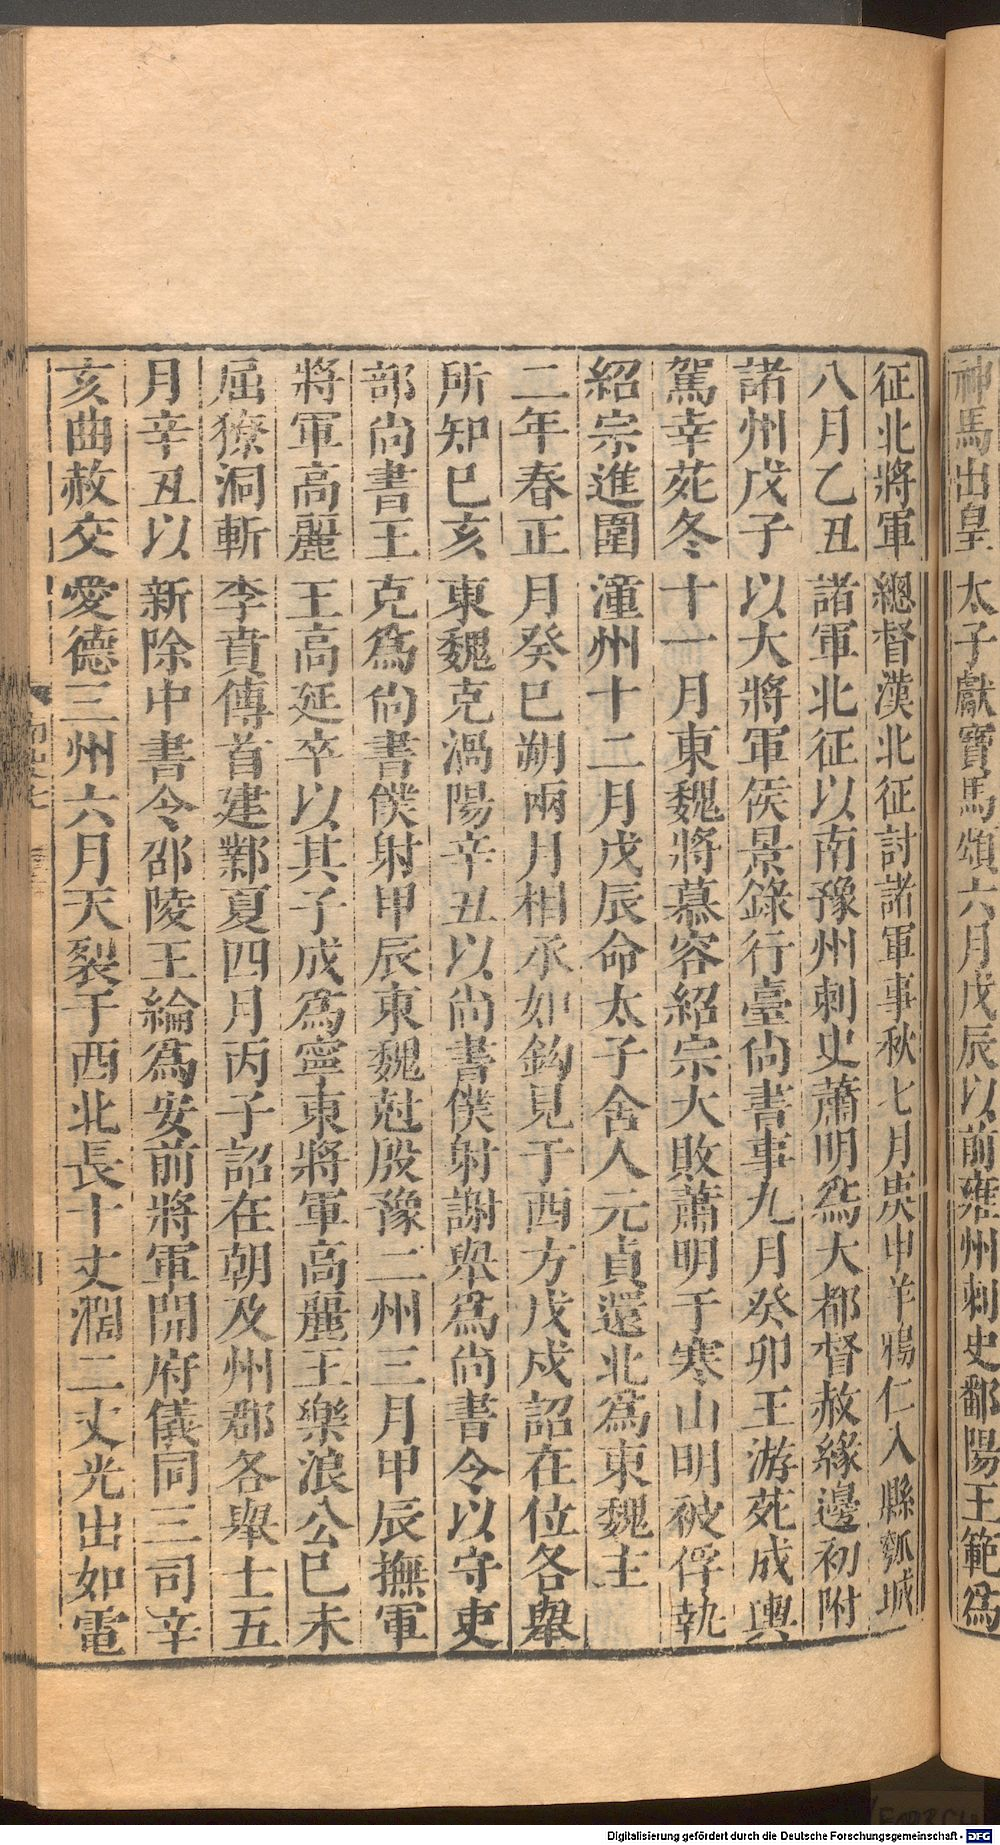 神馬出皇太子獻寶馬頌六月戊辰以前雍州刺史鄱陽王範爲
征北將軍總督漢北征討諸軍事秋七月庚申羊鴉仁入縣瓠城
八月乙丑諸軍北征以南豫州刺史蕭明爲大都督赦緣邊初附
諸州戊子以大將軍侯景錄行臺尚書事九月癸卯王游苑成輿
駕幸苑冬十一月東魏將慕容紹宗大敗蕭明于寒山明被俘執
紹宗進圍潼州十二月戊辰命太子舍人元貞還北爲東魏主
二年春正月癸巳朔兩月相承如鈎見于西方戊戌詔在位各舉
所知巳亥東魏克渦陽辛丑以尚書僕射謝舉爲尚書令以守吏
部尚書王克爲尚書僕射甲辰東魏尅殷豫二州三月甲辰撫軍
將軍高麗王高延卒以其子成爲寧東將軍高麗王樂浪公巳未
屈獠洞斬李賁傳首建鄴夏四月丙子詔在朝及州郡各舉士五
月辛丑以新除中書令邵陵王綸爲安前將軍開府儀同三司辛
亥曲赦交愛德三州六月天裂于西北長十丈濶二丈光出如電
Digitalisierung gefördert durch die Deutsche Forschungsgemeinschaft - DFG